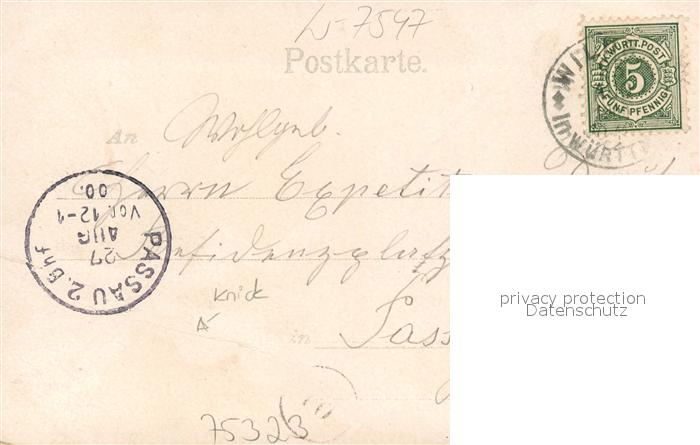 W-7547
Postkarte.
K.WÜRTT.POST
5
FÜNF PFENNIG
WIL
In WÜRTT
An Wohlgeb.
Herrn Expetit
Residenzplatz
in Pass
PASSAU 2. Bhf
27
AUG
Vor. 12-1
00.
Knick
75323
privacy protection
Datenschutz